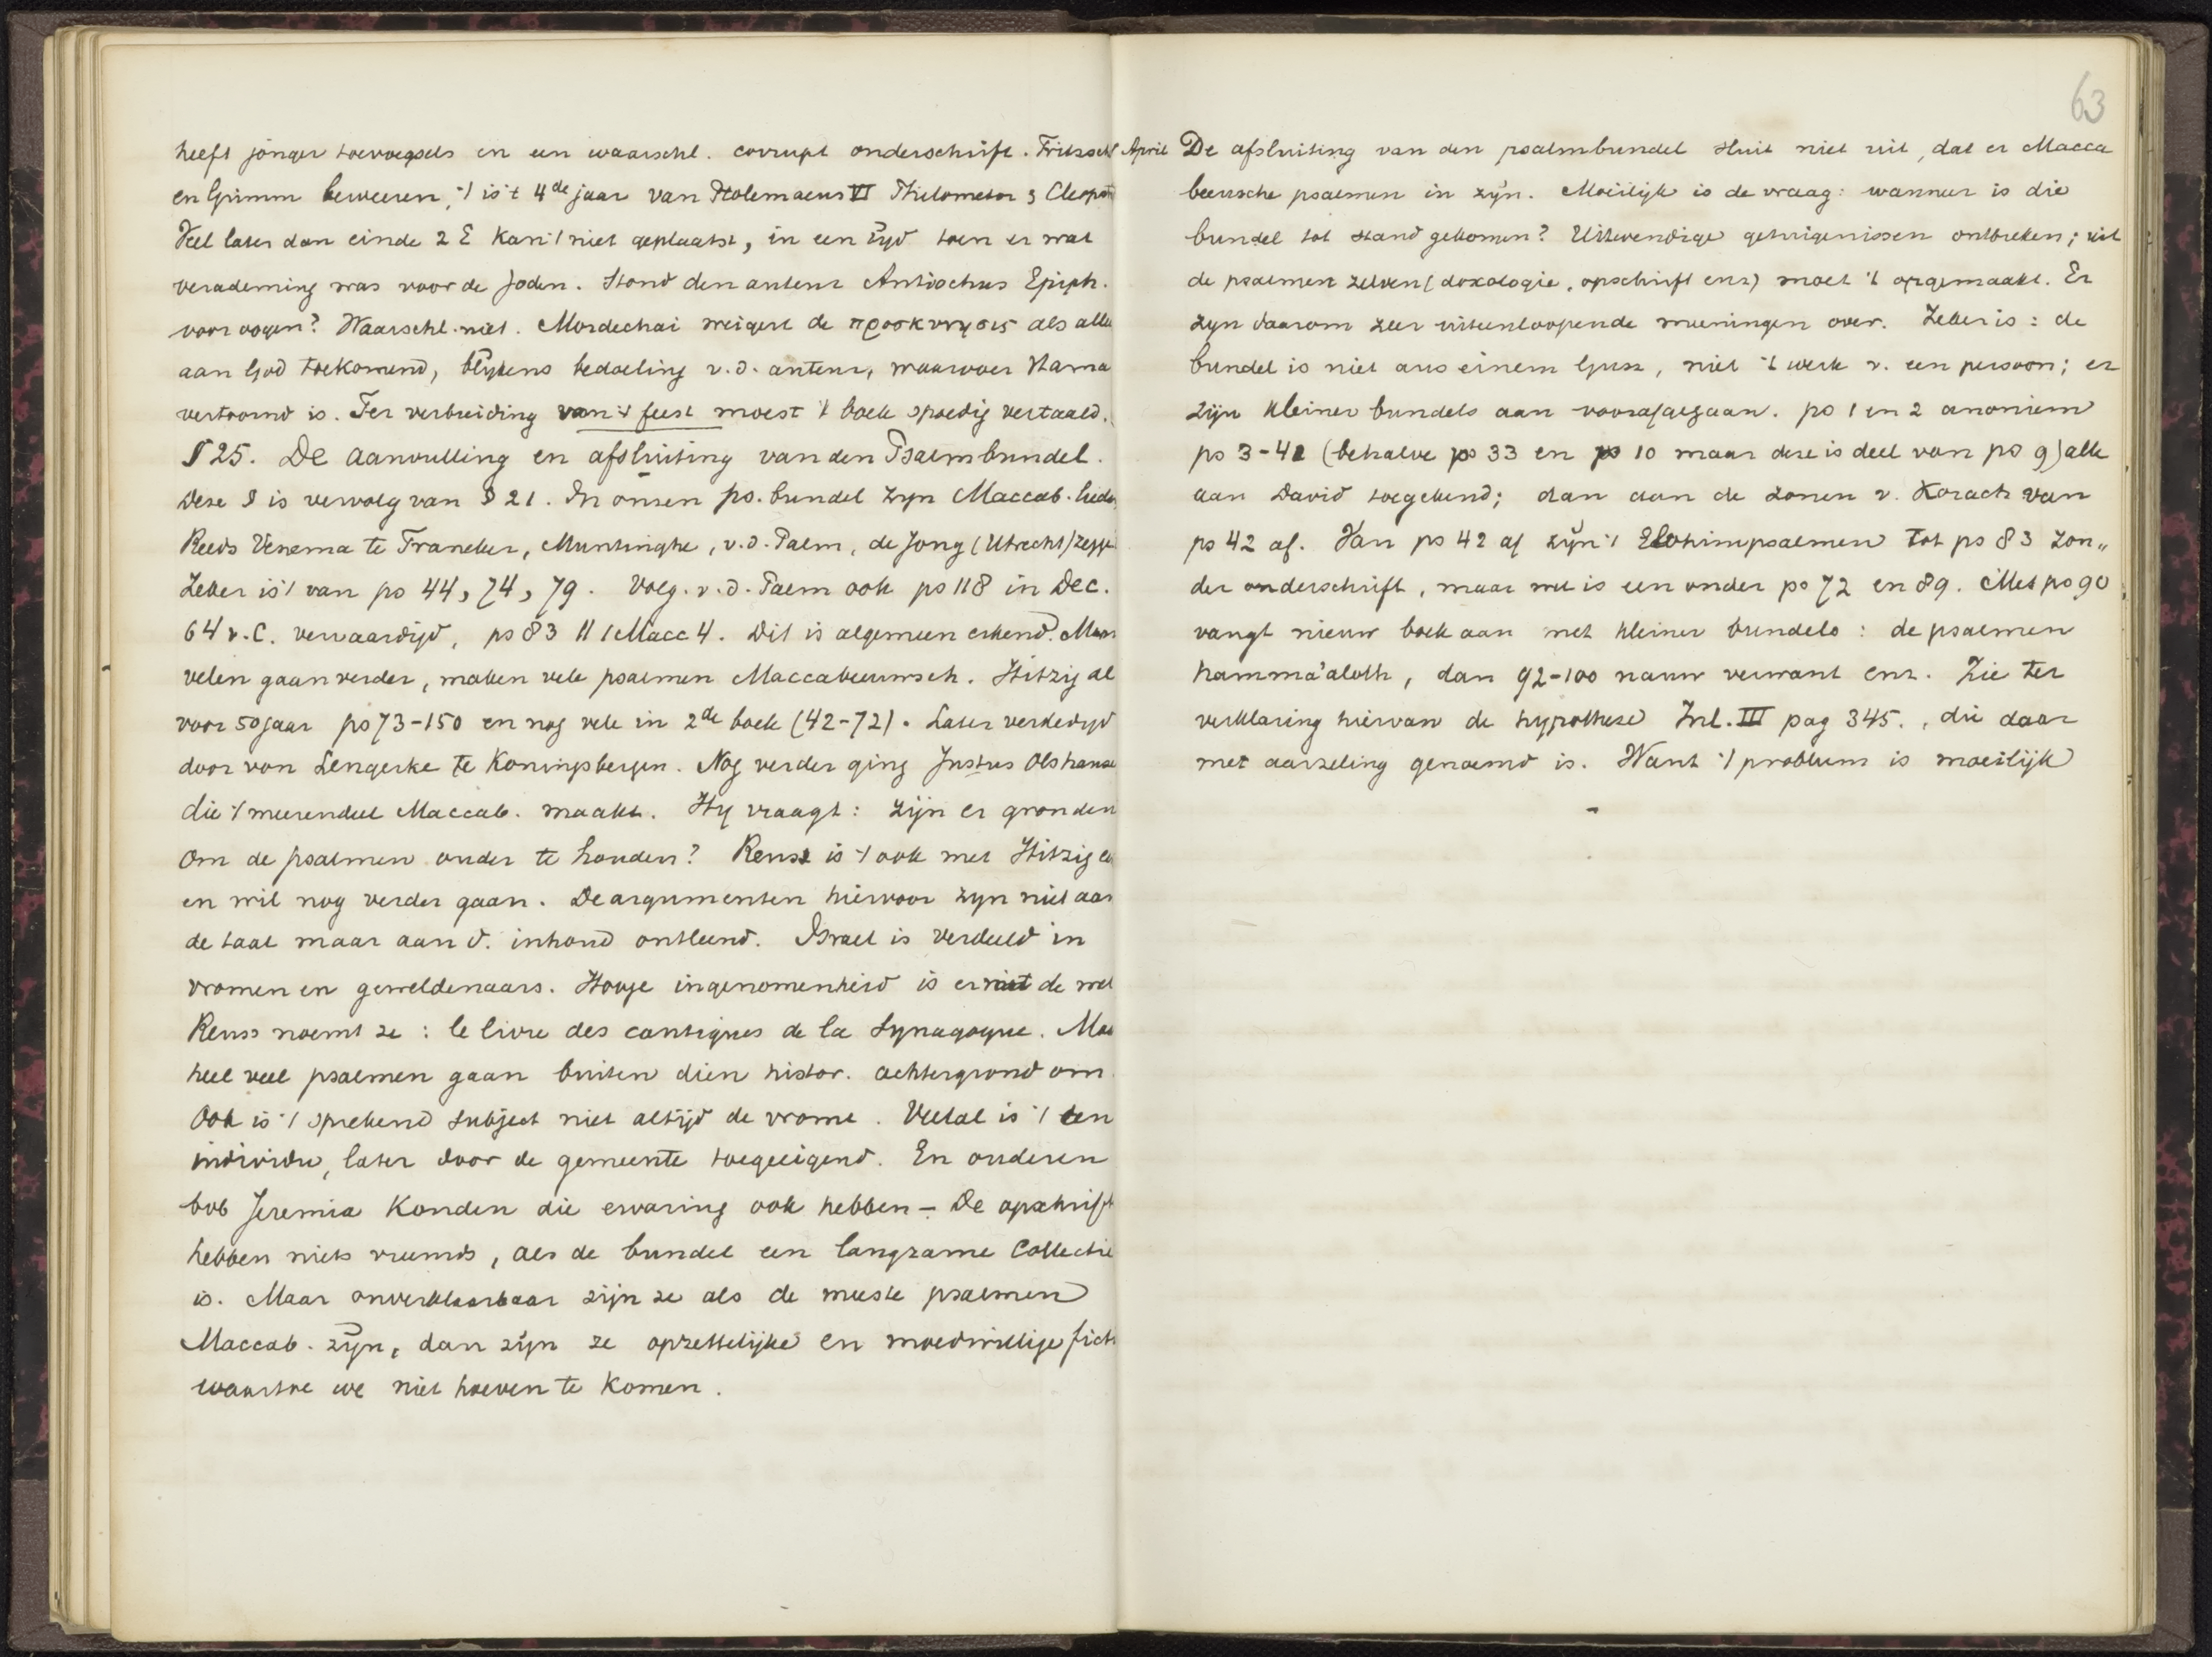 63
heeft jonger toevoegsels en een waarschl. corrupt onderschrift. Fritzsch
en Grimm beweeren, 't is 't 4de jaar van Ptolemaeus VI Philometor & Cleopat
Veel later dan einde 2 E kan 't niet geplaatst, in een tijd toen er wat
verademing was voor de Joden. Stond den auteur Antiochus Epiph.
voor oogen? Waarschl. niet. Mordechai weigert de προσκυνησις als alle
aan God toekomend, blijkens bedoeling v.d. auteur, waarvoor Hama
vertoornd is. Ter verbreiding van 't feest moest 't boek spoedig vertaald.
§ 25. De aanvulling en afsluiting van den Psalmbundel.
Deze § is vervolg van § 21. In onzen ps. bundel zyn Maccab. lied
Reeds Venema te Franeker, Muntinghe, v.d. Palm, de Jong (Utrecht) zegg
Zeker is 't van ps 44, 74, 79. Volg. v.d. Palm ook ps 118 in Dec.
64 v.C. vervaardigd, ps 83 // 1 Macc 4. Dit is algemeen erkend. Maar
velen gaan verder, maken vele psalmen Maccabeeuwsch. Hitzig al
voor 50 jaar ps 73-150 en nog vele in 2de boek (42-72). Later verdedigd
door von Lengerke te Koningsbergen. Nog verder ging Justus Olshause
die 't meerendeel Maccab. maakt. Hy vraagt: zijn er gronden
om de psalmen ouder te houden? Reuss is 't ook met Hitzig ee
en wil nog verder gaan. De argumenten hiervoor zyn niet aan
de taal maar aan d. inhoud ontleend. Israel is verdeeld in
vromen en geweldenaars. Hooge ingenomenheid is er met de wet
Reuss noemt ze: le livre des cantiques de la Synagogue. Maa
heel veel psalmen gaan buiten dien histor. achtergrond om.
Ook is 't sprekend subject niet altijd de vrome. Veelal is 't een
individu, later door de gemeente toegeeigend. En ouderen
bvb Jeremia konden die ervaring ook hebben - De opschrift
hebben niets vreemds, als de bundel een langzame collectie
is. Maar onverklaarbaar zijn ze als de meeste psalmen
Maccab. zijn, dan zijn ze opzettelijke en moedwillige fict
waartoe we niet hoeven te komen.
April De afsluiting van den psalmbundel sluit niet uit, dat er Macca
beeusche psalmen in zijn. Moeilijk is de vraag: wanneer is die
bundel tot stand gekomen? Uitwendige getuigenissen ontbreken; uit
de psalmen zelven (doxologie, opschrift enz) moet 't opgemaakt. Er
zyn daarom zeer uiteenloopende meeningen over. Zeker is: de
bundel is niet aus einem Guss, niet 't werk v. een persoon; er
zijn kleiner bundels aan voorafgegaan. ps 1 en 2 anoniem
ps 3-41 (behalve ps 33 en ps 10 maar deze is deel van ps 9) alle
aan David toegekend; dan aan de zonen v. Korach van
ps 42 af. Van ps 42 af zijn 't Elohimpsalmen tot ps 83 zon„
der onderschrift, maar wel is een onder ps 72 en 89. Met ps 90
vangt nieuw boek aan met kleiner bundels: de psalmen
hamma'aloth, dan 92-100 nauw verwant enz. Zie ter
verklaring hiervan de hypothese Inl. III pag 345., die daar
met aarzeling genoemd is. Want 't probleem is moeilijk